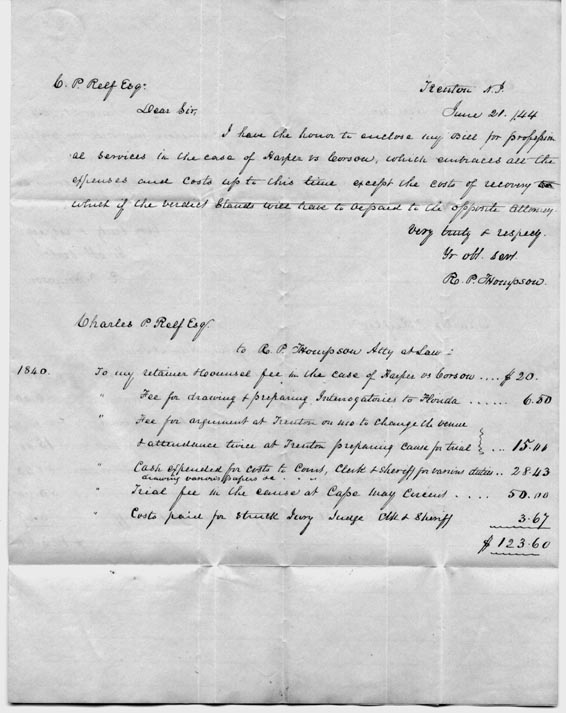 C. P. Relf Esq:
Trenton N.J.
Dear Sir,
June 21. /44
I have the honor to enclose my Bill for profession
al services in the case of Harper vs Corson, which embraces all the
expenses and costs up to this time except the costs of recovery
which if the verdict Stands will have to be paid to the opposite Attorney
Very truly & respecy.
Yr obt. servt
R. P. Thompson.
Charles P. Relf Esq.
to R. P. Thompson Atty at Law:
1840. To my retainer & Counsel fee in the case of Harper vs Corson .... $20.
" Fee for drawing & preparing Interrogatories to Florida ...... 6.50
" Fee for argument at Trenton on mo to Change the venue
& attendance twice at Trenton preparing cause for trial } ... 15.00
" Cash expended for costs to Court, Clerk & Sheriff for various duties .. 28.43
drawing various papers &c . . . .
" Trial fee in the cause at Cape May Circuit .... 50.00
" Costs paid for Struck Jury Judge Clk & Sheriff 3.67
$123.60